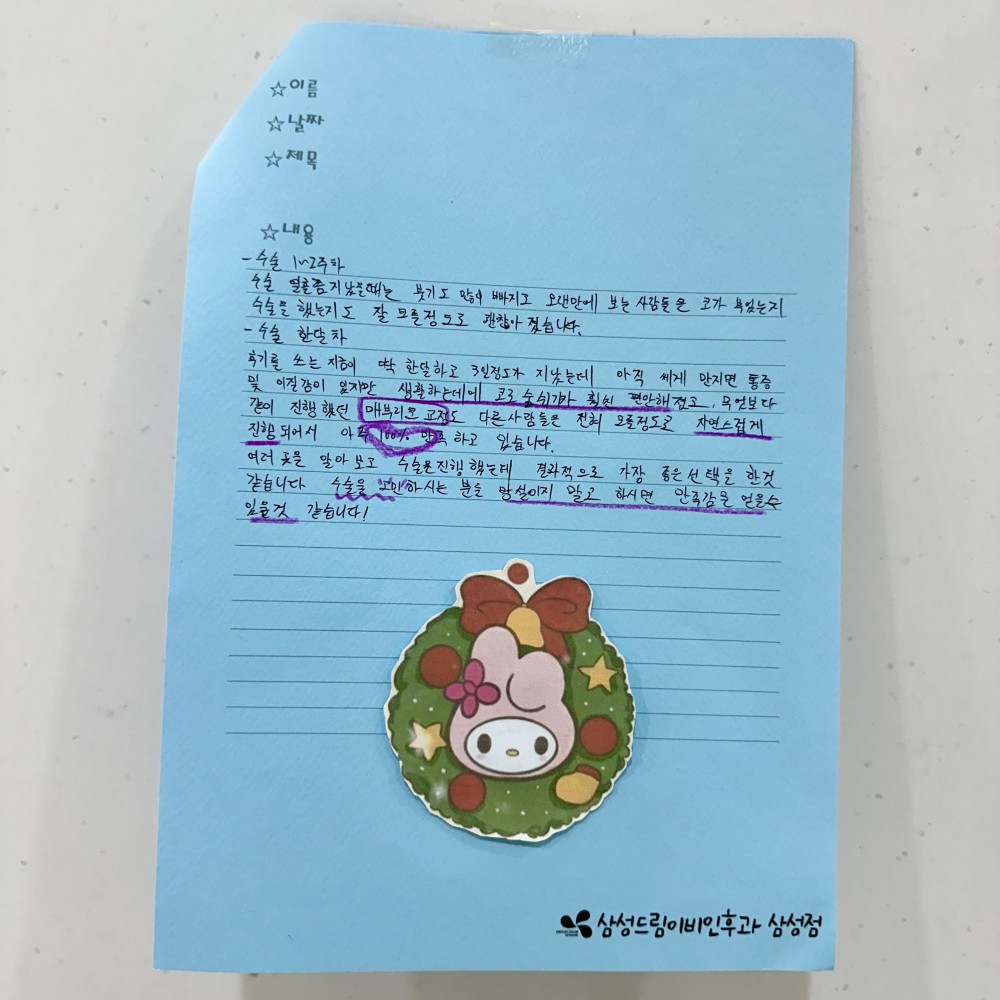 ☆이름
☆날짜
☆제목
☆내용
- 수술 1~2주차
수술 열흘쯤지났을때는 붓기도 많이 빠지고 오랜만에 보는 사람들은 코가 부었는지
수술을 했는지도 잘 모를정도로 괜찮아 졌습니다.
- 수술 한달차
후기를 쓰는 지금이 딱 한달하고 3일정도가 지났는데 아직 쎄게 만지면 통증
및 이질감이 있지만 생활하는데에 코로 숨쉬기가 훨씬 편안해졌고, 무엇보다
같이 진행했던 매부리코 교정도 다른사람들은 전혀 모를정도로 자연스럽게
진행되어서 아주 100% 만족하고 있습니다.
여러곳을 알아보고 수술을진행했는데 결과적으로 가장 좋은선택을 한것
같습니다 수술을 고민하시는 분들 망설이지 말고 하시면 만족감을 얻을수
있을것 같습니다!
삼성드림이비인후과 삼성점